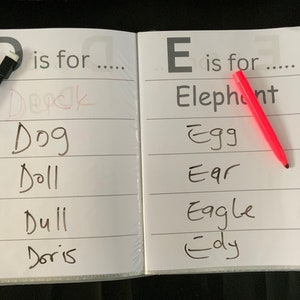 D is for .....
Derek
Dog
Doll
Dull
Doris
E is for .....
Elephant
Egg
Ear
Eagle
Edy